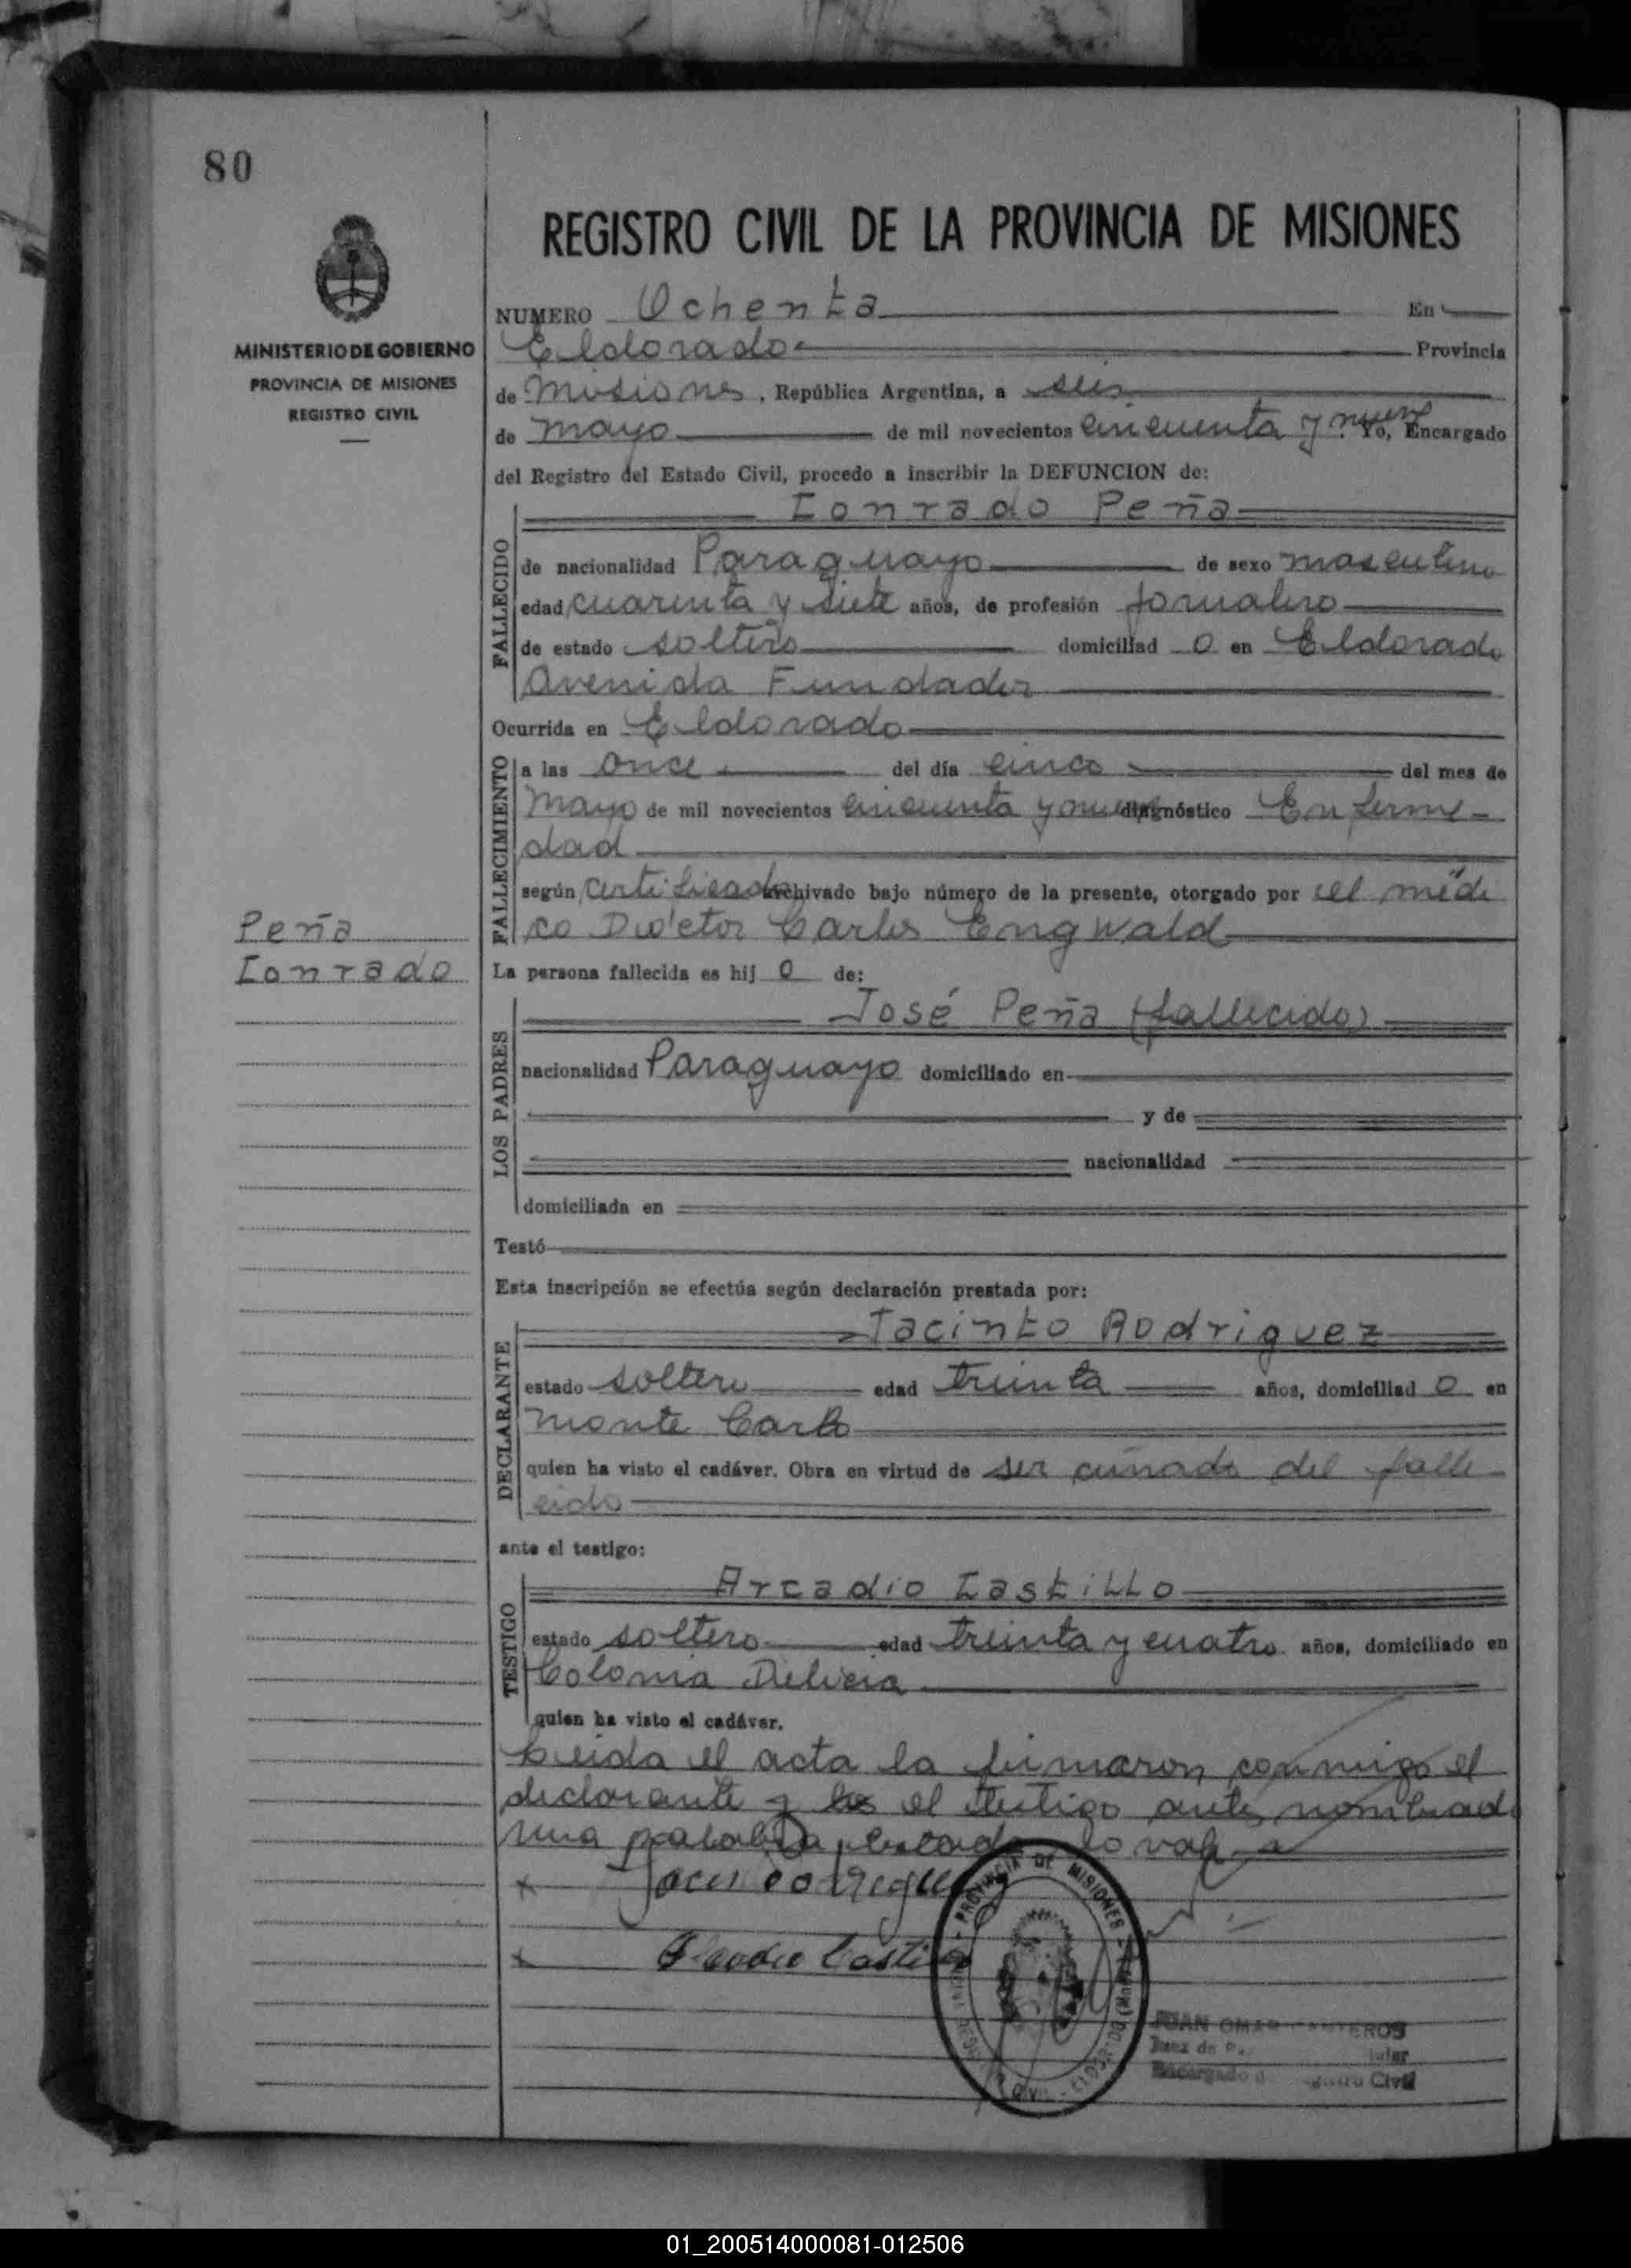 80
MINISTERIO DE GOBIERNO
PROVINCIA DE MISIONES
REGISTRO CIVIL
Peña
Conrado
REGISTRO CIVIL DE LA PROVINCIA DE MISIONES
NUMERO Ochenta En
Eldorado Provincia
de Misiones, República Argentina, a seis
de mayo de mil novecientos cincuenta y nueve Yo, Encargado
del Registro del Estado Civil, procedo a inscribir la DEFUNCION de:
Conrado Peña
FALLECIDO
de nacionalidad Paraguayo de sexo masculino
edad cuarenta y siete años, de profesión jornalero
de estado soltero domiciliad o en Eldorado
Avenida Fundador
Ocurrida en Eldorado
FALLECIMIENTO
a las once del día cinco del mes de
Mayo de mil novecientos cincuenta y nueve diagnóstico Enferme-
dad
según certificado archivado bajo número de la presente, otorgado por el médi
co Doctor Carlos Engwald
La persona fallecida es hij o de:
LOS PADRES
José Peña (fallecido)
nacionalidad Paraguayo domiciliado en
y de
nacionalidad
domiciliada en
Testó
Esta inscripción se efectúa según declaración prestada por:
DECLARANTE
Jacinto Rodriguez
estado soltero edad treinta años, domiciliad o en
Monte Carlo
quien ha visto el cadáver. Obra en virtud de ser cuñado del falle-
cido
ante el testigo:
TESTIGO
Arcadio Castillo
estado soltero edad treinta y cuatro años, domiciliado en
Colonia Delicia
quien ha visto el cadáver.
Leida el acta la firmaron conmigo el
declarante y los el testigo antes nombrado
una palabra testado no vale
PROVINCIA DE MISIONES
JUAN OMAR
Juez de P.
Encargado d Civil
01_200514000081-012506